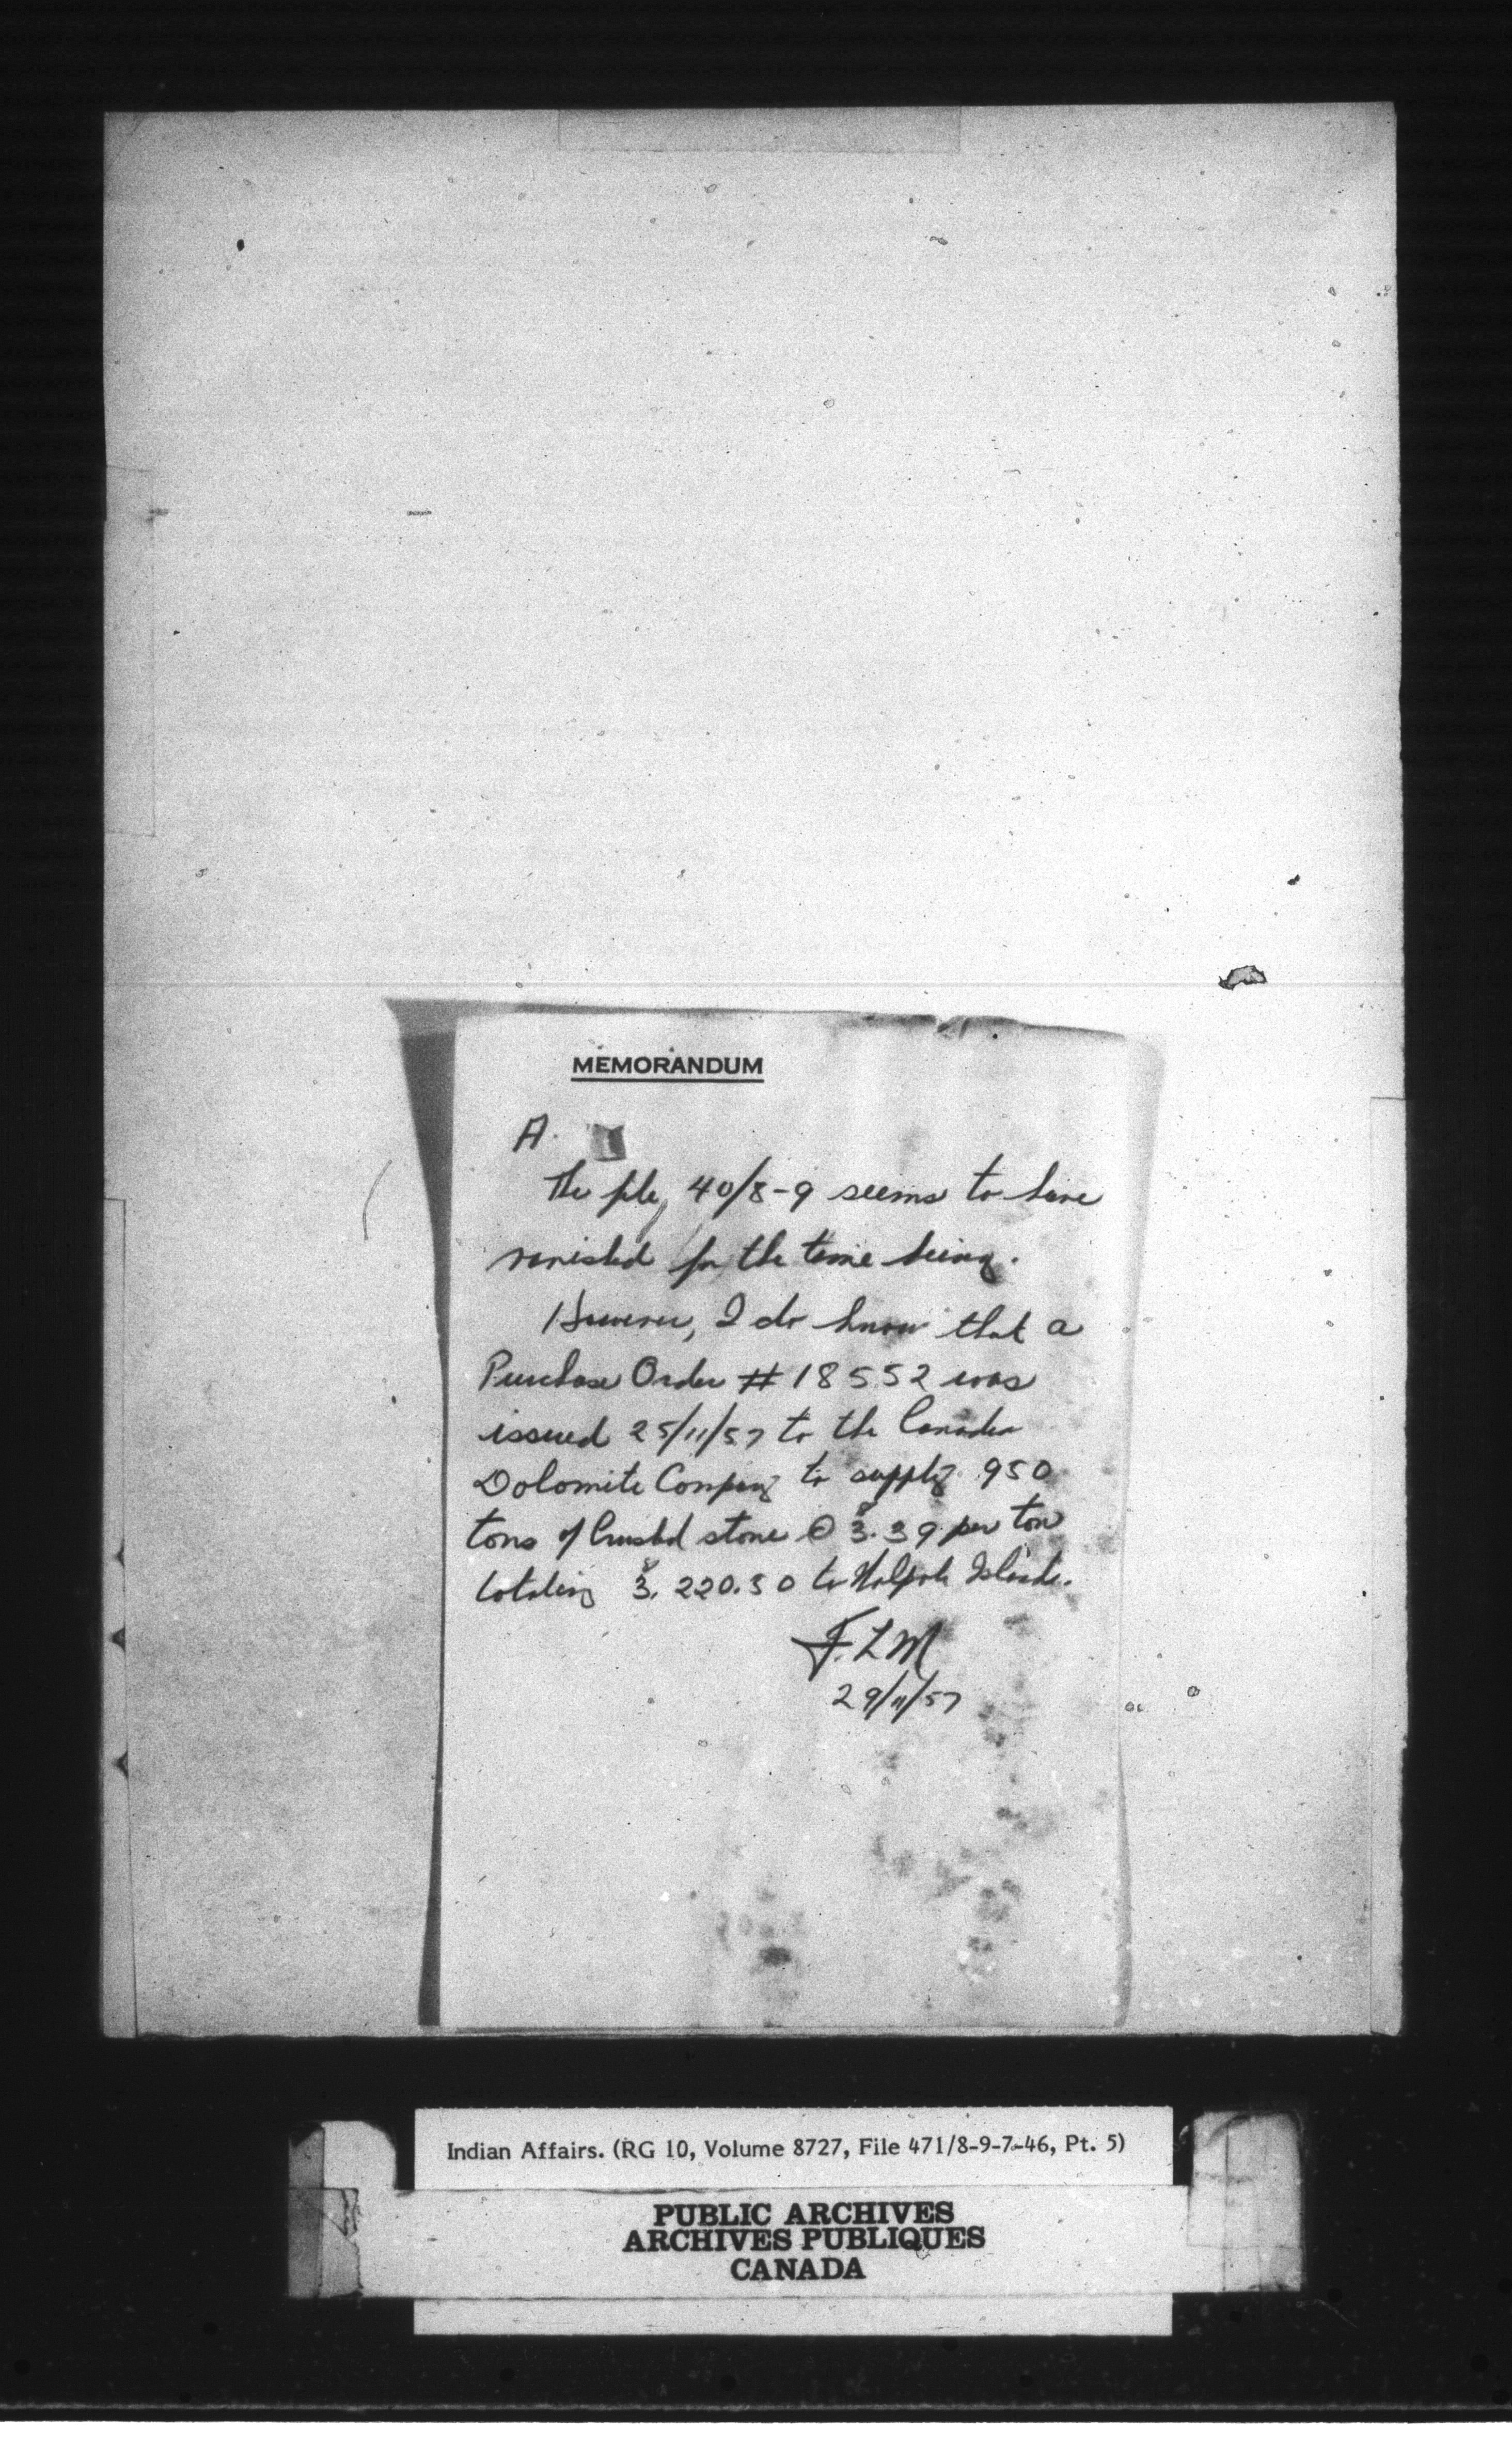 MEMORANDUM
A.
The file, 40/8-9 seems to have
vanished for the time being.
However, I do know that a
Purchase Order # 18552 was
issued 25/11/57 to the Canada
Dolomite Company to supply 950
tons of Crushed stone @ $3.39 per ton
totaling $3,220.50 to Walpole Island.
F.L.M
29/11/57
Indian Affairs. (RG 10, Volume 8727, File 471/8-9-7-46, Pt. 5)
PUBLIC ARCHIVES
ARCHIVES PUBLIQUES
CANADA